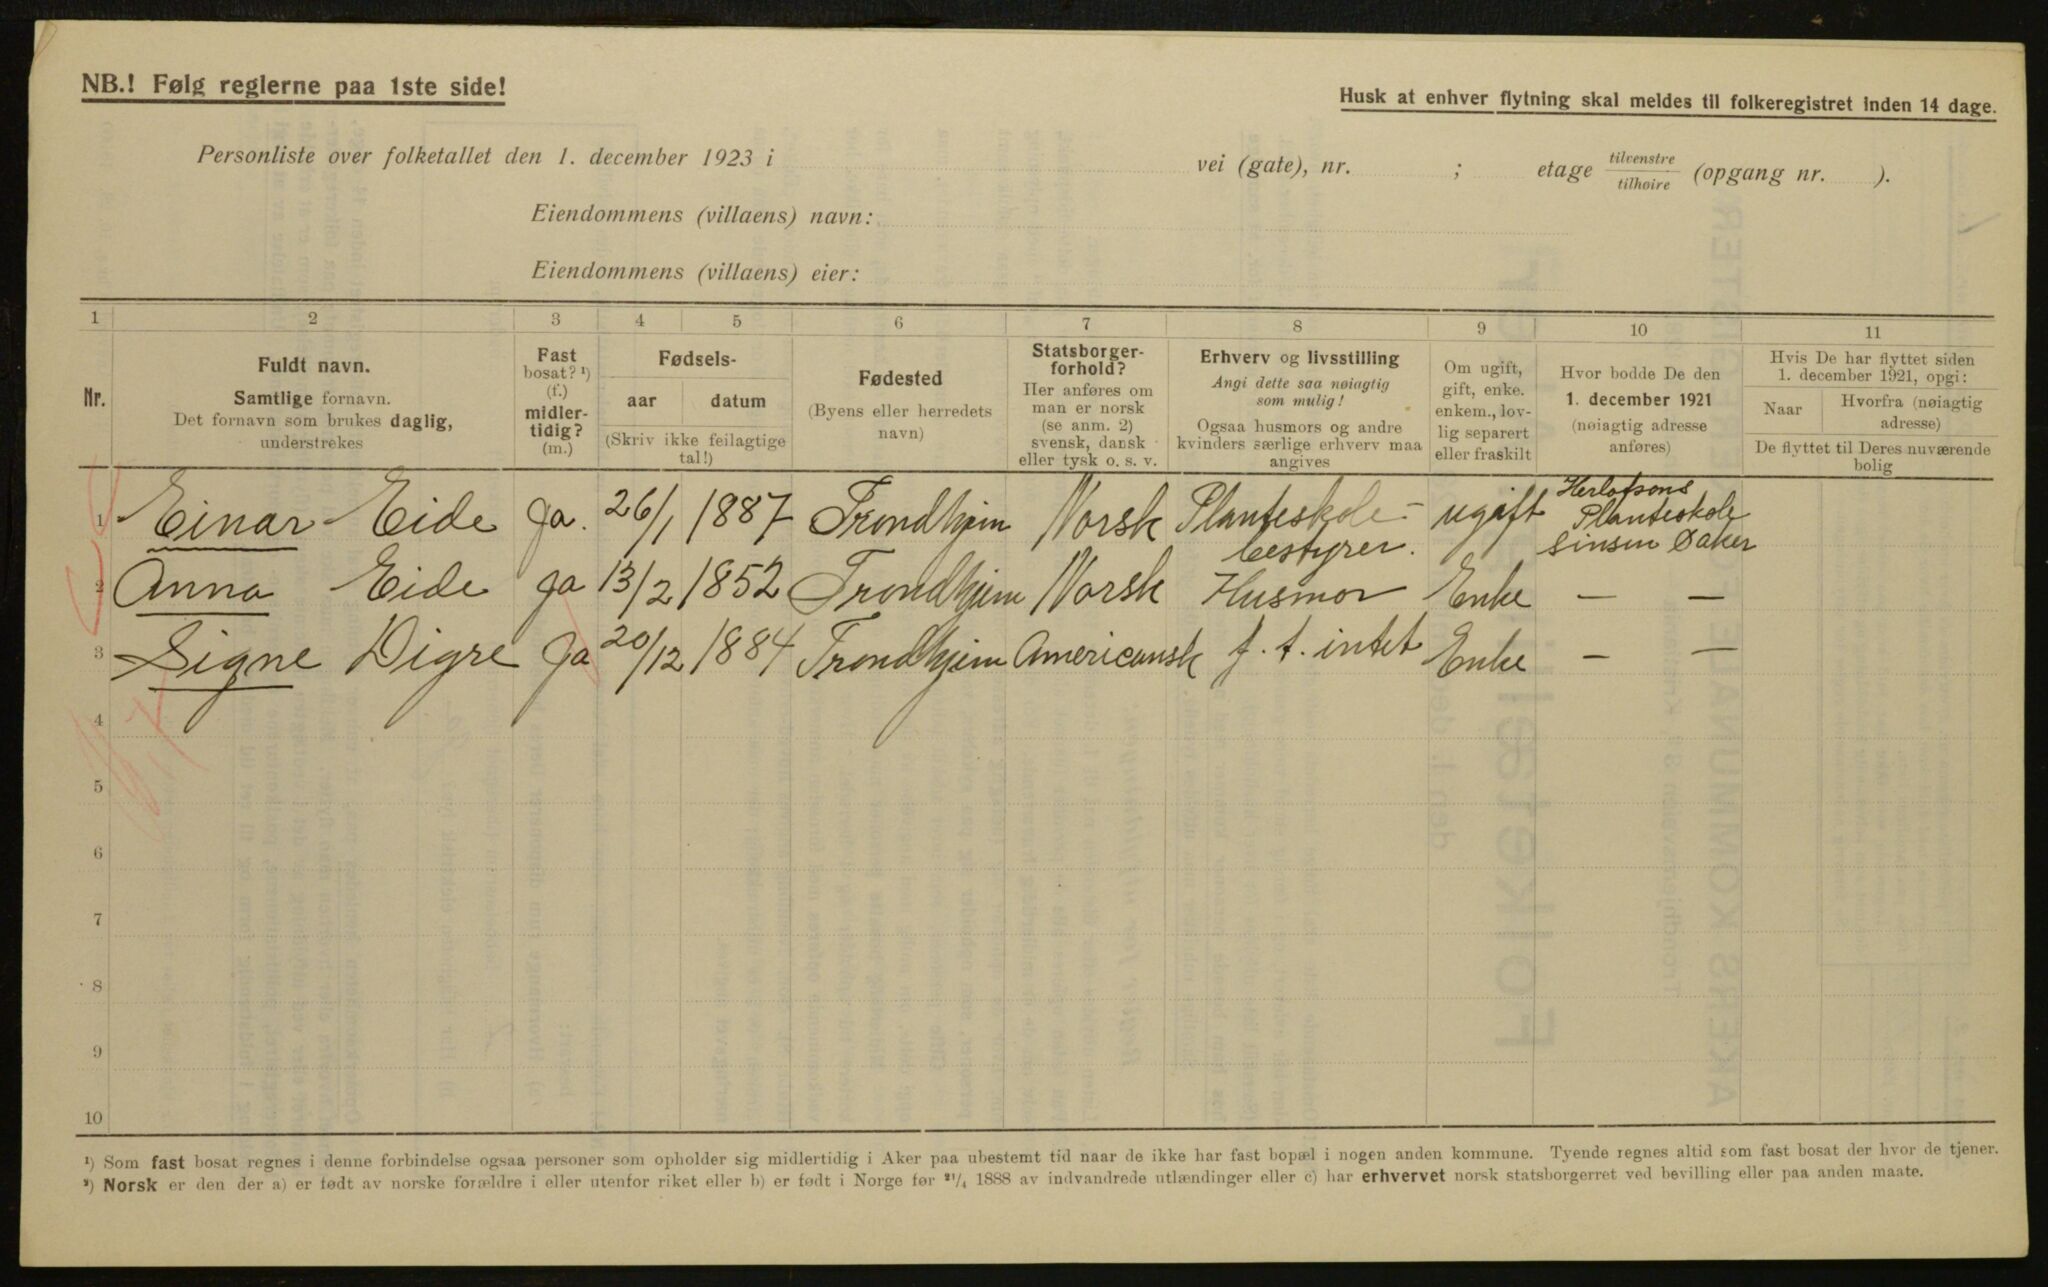 NB.! Følg reglerne paa 1ste side!
Husk at enhver flytning skal meldes til folkeregistret inden 14 dage.
Personliste over folketallet den 1. december 1923 i vei (gate), nr. ; etage tilvenstre/tilhøire (opgang nr. ).
Eiendommens (villaens) navn:
Eiendommens (villaens) eier:
1 2 3 4 5 6 7 8 9 10 11
Nr.
Fuldt navn.
Samtlige fornavn.
Det fornavn som brukes daglig,
understrekes
Fast
bosat? ¹)
(f.)
midler-
tidig?
(m.)
Fødsels-
aar datum
(Skriv ikke feilagtige
tal!)
Fødested
(Byens eller herredets
navn)
Statsborger-
forhold?
Her anføres om
man er norsk
(se anm. 2)
svensk, dansk
eller tysk o. s. v.
Erhverv og livsstilling
Angi dette saa nøiagtig
som mulig!
Ogsaa husmors og andre
kvinders særlige erhverv maa
angives
Om ugift,
gift, enke.
enkem., lov-
lig separert
eller fraskilt
Hvor bodde De den
1. december 1921
(nøiagtig adresse
anføres)
Hvis De har flyttet siden
1. december 1921, opgi:
Naar
Hvorfra (nøiagtig
adresse)
De flyttet til Deres nuværende
bolig
1 Einar Eide Ja. 26/1 1887 Trondhjem Norsk Planteskole-
bestyrer. ugift Herlofsons
Planteskole
Sinsen Øaker
2 Anna Eide Ja 13/2 1852 Trondhjem Norsk Husmor Enke — —
3 Signe Digre Ja 20/12 1884 Trondhjem Americansk f. t. intet Enke — —
4
5
6
7
8
9
10
¹) Som fast bosat regnes i denne forbindelse ogsaa personer som opholder sig midlertidig i Aker paa ubestemt tid naar de ikke har fast bopæl i nogen anden kommune. Tyende regnes altid som fast bosat der hvor de tjener.
²) Norsk er den der a) er født av norske forældre i eller utenfor riket eller b) er født i Norge før ²¹/₄ 1888 av indvandrede utlændinger eller c) har erhvervet norsk statsborgerret ved bevilling eller paa anden maate.